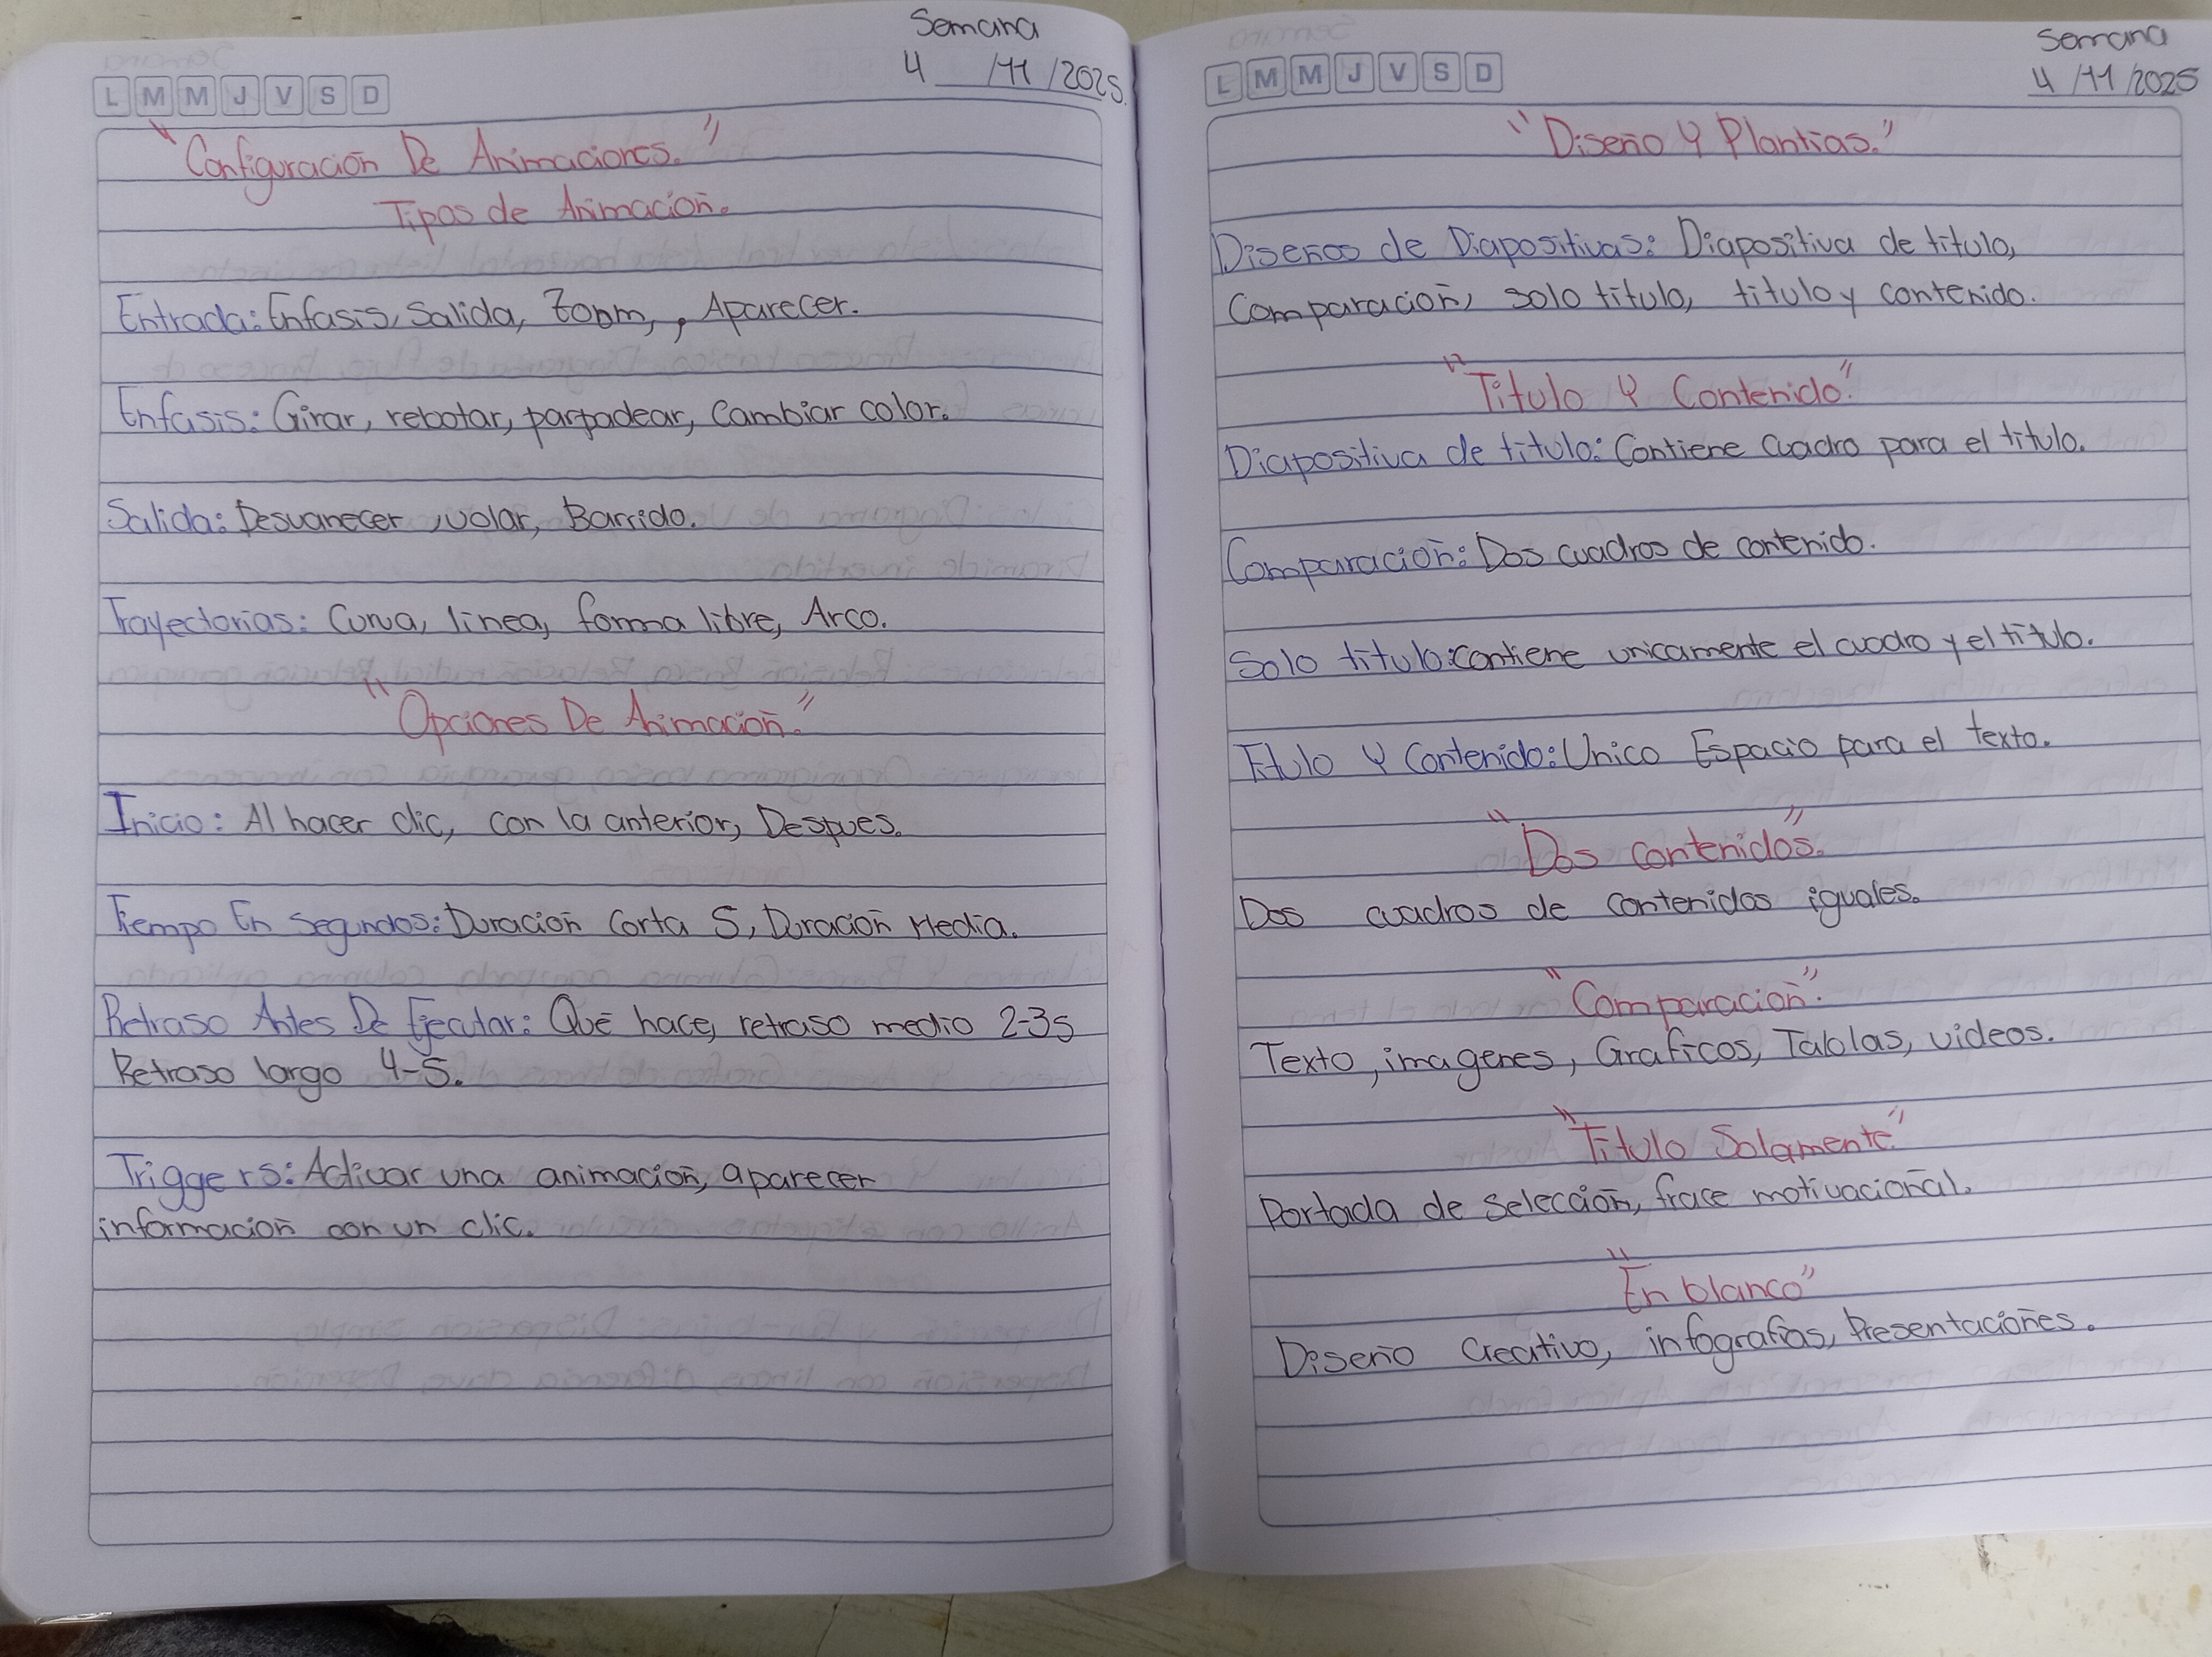 Semana
L M M J V S D
4 /11/2025.
"Configuración De Animaciones."
Tipos de Animación.
Entrada: Enfasis, Salida, Zoom, , Aparecer.
Enfasis: Girar, rebotar, parpadear, Cambiar color.
Salida: Desvanecer, volar, Barrido.
Trayectorias: Curva, linea, forma libre, Arco.
"Opciones De Animación."
Inicio: Al hacer clic, con la anterior, Despues.
Tiempo En Segundos: Duración Corta S, Duración Media.
Retraso Antes De Ejecutar: Qué hace, retraso medio 2-3s
Retraso largo 4-5.
Triggers: Activar una animación, aparecer
información con un clic.
Semana
L M M J V S D
4 /11/2025
"Diseño Y Plantías."
Diseños de Diapositivas: Diapositiva de título,
Comparación, solo título, título y contenido.
"Título Y Contenido."
Diapositiva de título: Contiene cuadro para el título.
Comparación: Dos cuadros de contenido.
Solo título: contiene unicamente el cuadro y el título.
Título Y Contenido: Unico Espacio para el texto.
"Dos contenidos."
Dos cuadros de contenidos iguales.
"Comparación".
Texto, imagenes, Graficos, Tablas, videos.
"Título Solamente."
Portada de selección, frace motivacional.
"En blanco"
Diseño Creativo, infografías, Presentaciones.